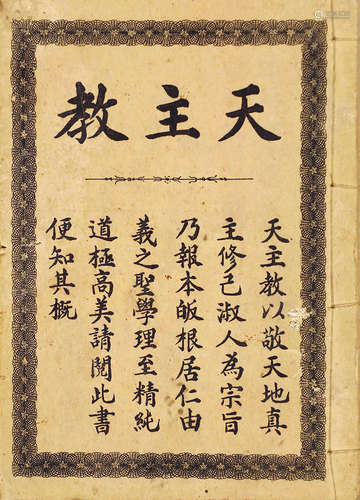 天主教
天主教以敬天地真
主修己淑人為宗旨
乃報本皈根居仁由
義之聖學理至精純
道極高美請閱此書
便知其概